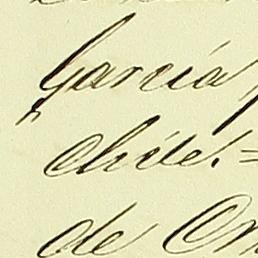 García
" Chile. =
de